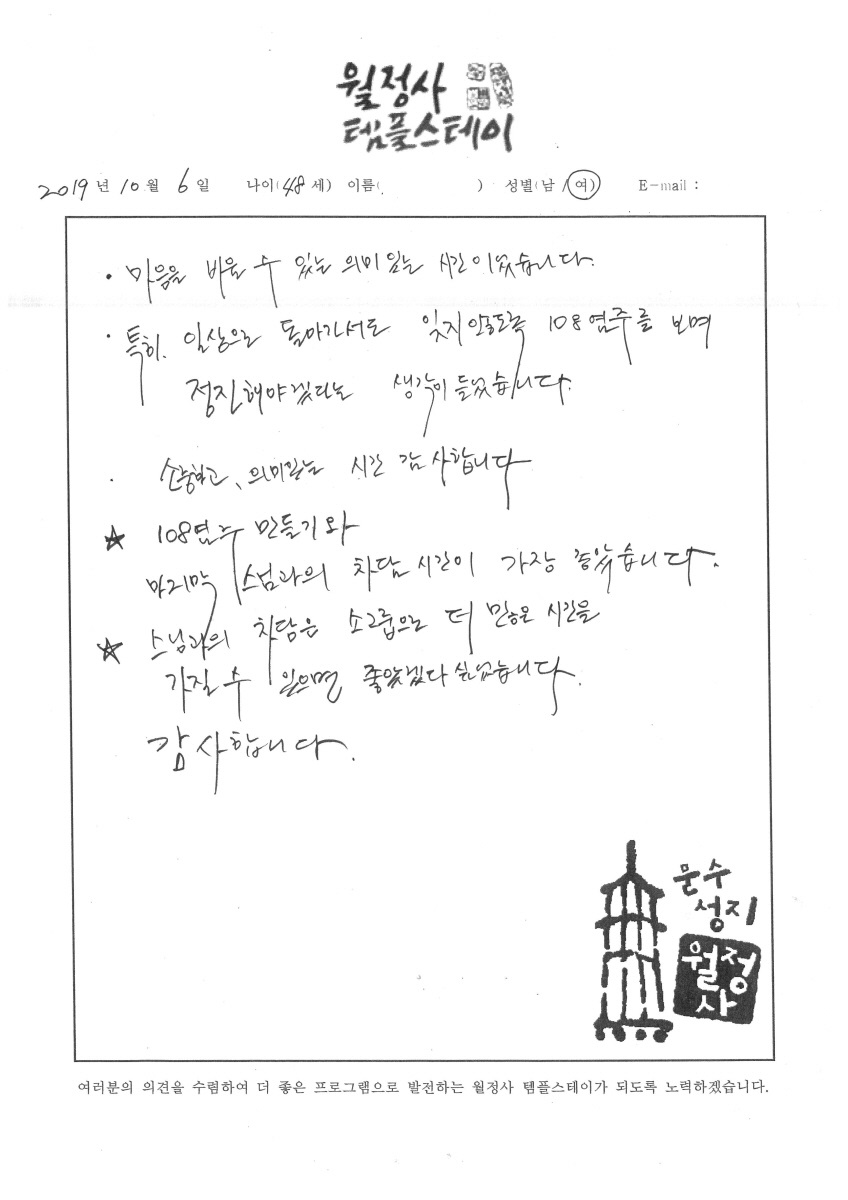 월정사
템플스테이
2019년 10월 6일 나이(48세) 이름( ) 성별(남/여) E-mail :
· 마음을 비울 수 있는 의미있는 시간이었습니다.
· 특히, 일상으로 돌아가서도 잊지않도록 108염주를 보며
정진해야겠다는 생각이 들었습니다.
· 소중하고, 의미있는 시간 감사합니다
★ 108염주 만들기와
마지막 스님과의 차담시간이 가장 좋았습니다.
★ 스님과의 차담은 소그룹으로 더 많은 시간을
가질 수 있으면 좋았겠다 싶었습니다.
감사합니다.
문수
성지
월정
사
여러분의 의견을 수렴하여 더 좋은 프로그램으로 발전하는 월정사 템플스테이가 되도록 노력하겠습니다.